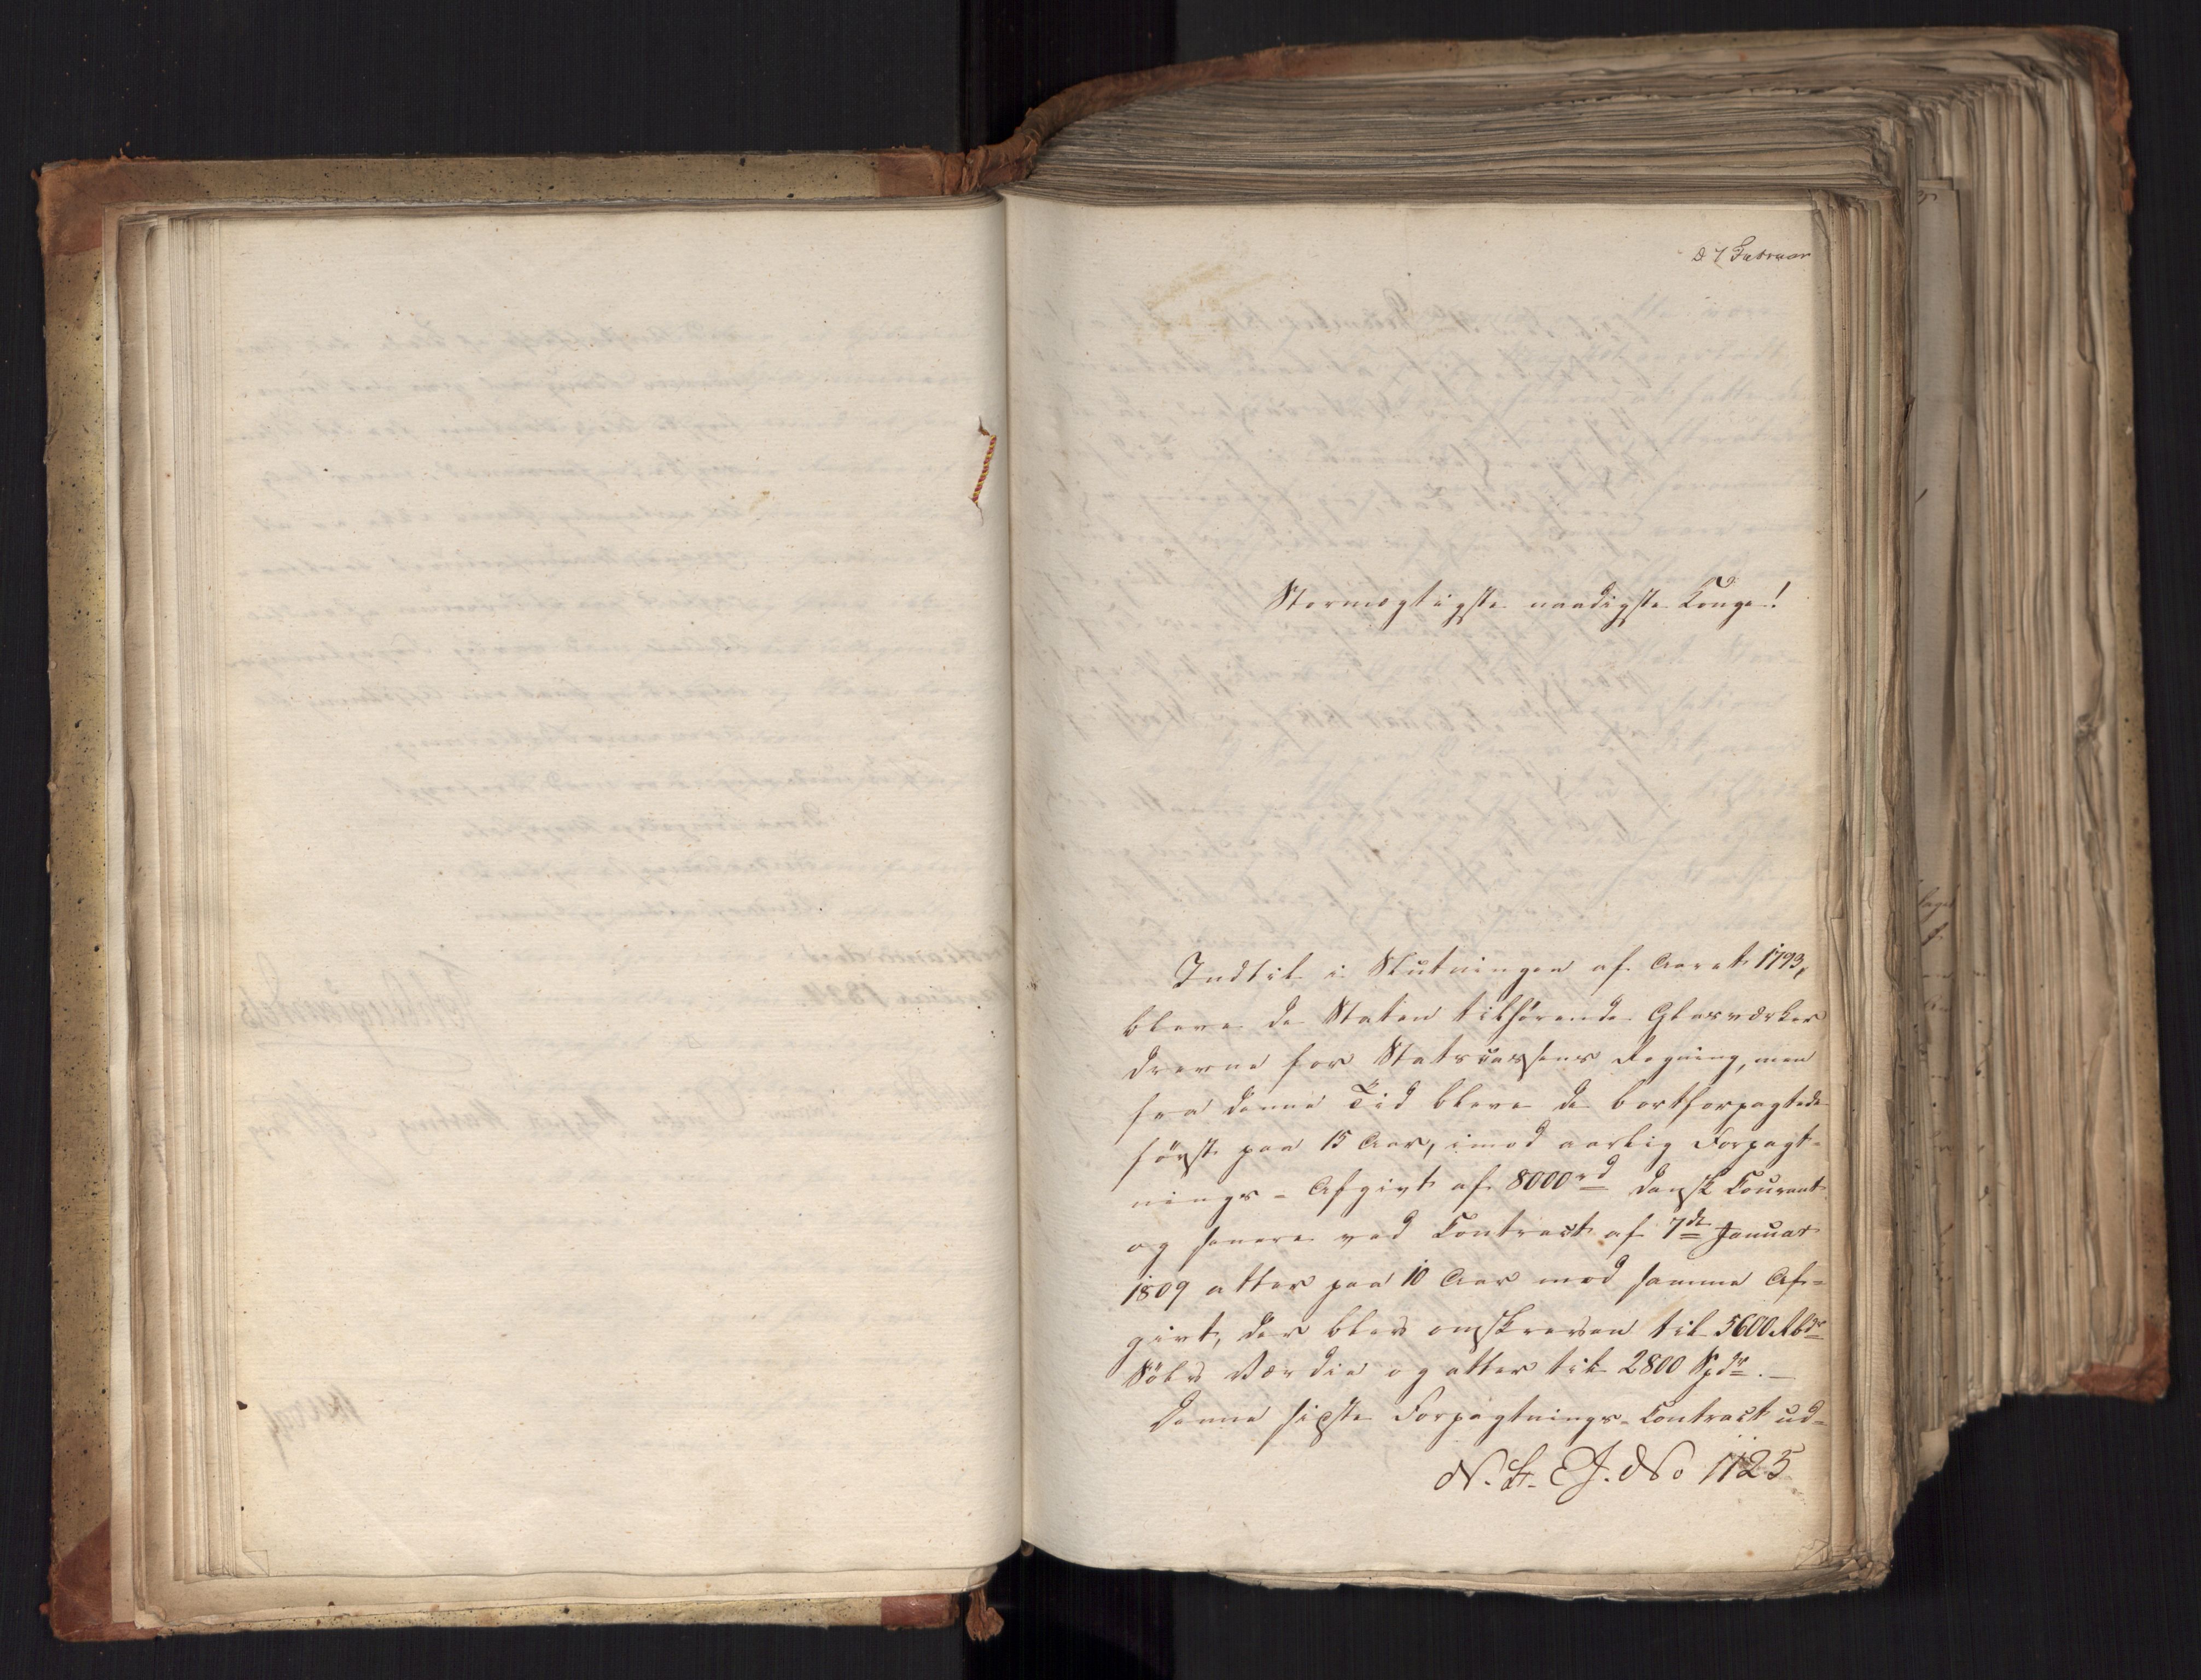 d 7 Februar
Stormægtigste naadigste Konge!
Indtil i Slutningen af Aaret 1793,
bleve de Staten tilhørende Glasværker
drevne for Statscassens Regning, men
fra denne Tid bleve de bortforpagtede
først paa 15 Aar, imod aarlig Forpagt-
nings-Afgivt af 8000 rd dansk Courant
og senere ved Contract af 7de Januar
1809 atter paa 10 Aar mod samme Af-
givt, der blev omskreven til 5600 Rbdr
Sölv Værdie og atter til 2800 Spdr. —
Denne sidste Forpagtnings-Contract ud-
N. St. EJ. No 1123